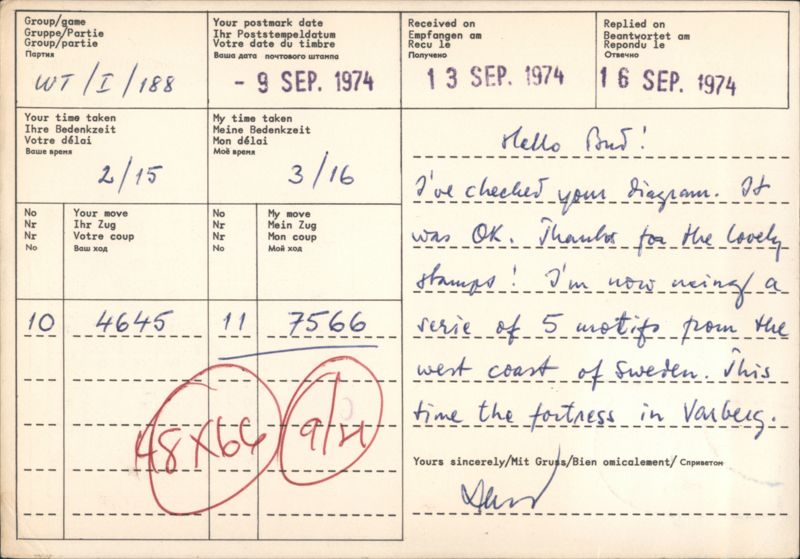 Group/game
Gruppe/Partie
Group/partie
Партия
WT/I/188
Your postmark date
Ihr Poststempeldatum
Votre date du timbre
Ваша дата почтового штампа
- 9 SEP. 1974
Received on
Empfangen am
Recu le
Получено
13 SEP. 1974
Replied on
Beantwortet am
Repondu le
Отвечно
16 SEP. 1974
Your time taken
Ihre Bedenkzeit
Votre délai
Ваше время
2/15
My time taken
Meine Bedenkzeit
Mon délai
Моё время
3/16
No
Nr
Nr
No
Your move
Ihr Zug
Votre coup
Ваш ход
No
Nr
Nr
No
My move
Mein Zug
Mon coup
Мой ход
10 4645 11 7566
48X66 9/21
Hello Bud!
I've checked your diagram. It
was OK. Thanks for the lovely
stamps! I'm now using a
serie of 5 motifs from the
west coast of Sweden. This
time the fortress in Varberg.
Yours sincerely/Mit Gruss/Bien omicalement/ Спριветом